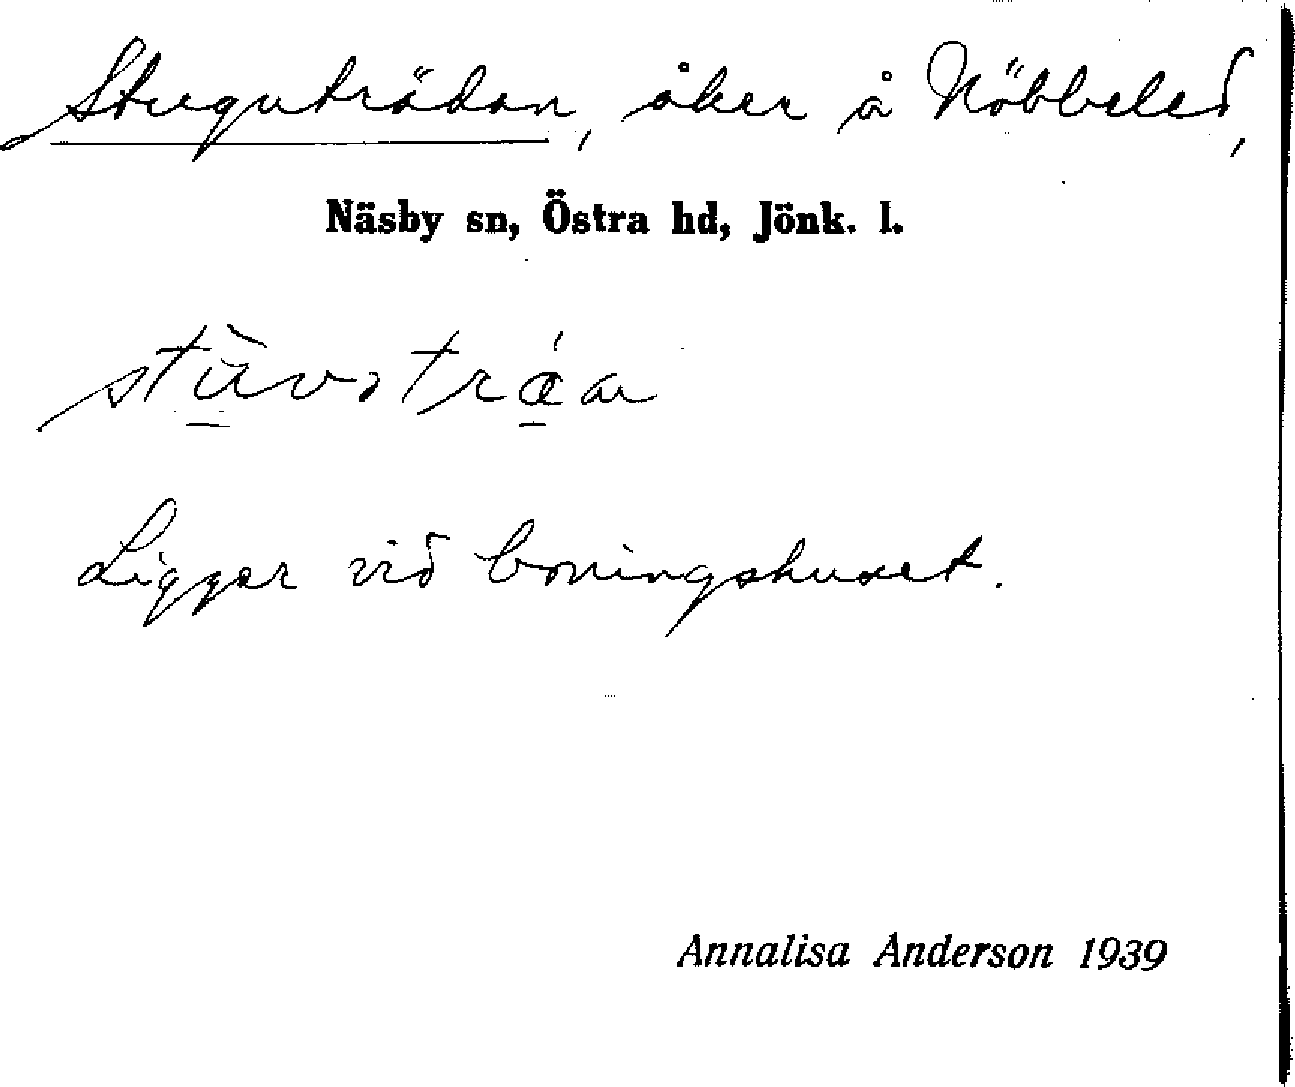 Stuguträdan, åker å Nöbbeled,
Näsby sn, Östra hd, Jönk. l.
Ligger vid boningshuset.
Annalisa Anderson 1939